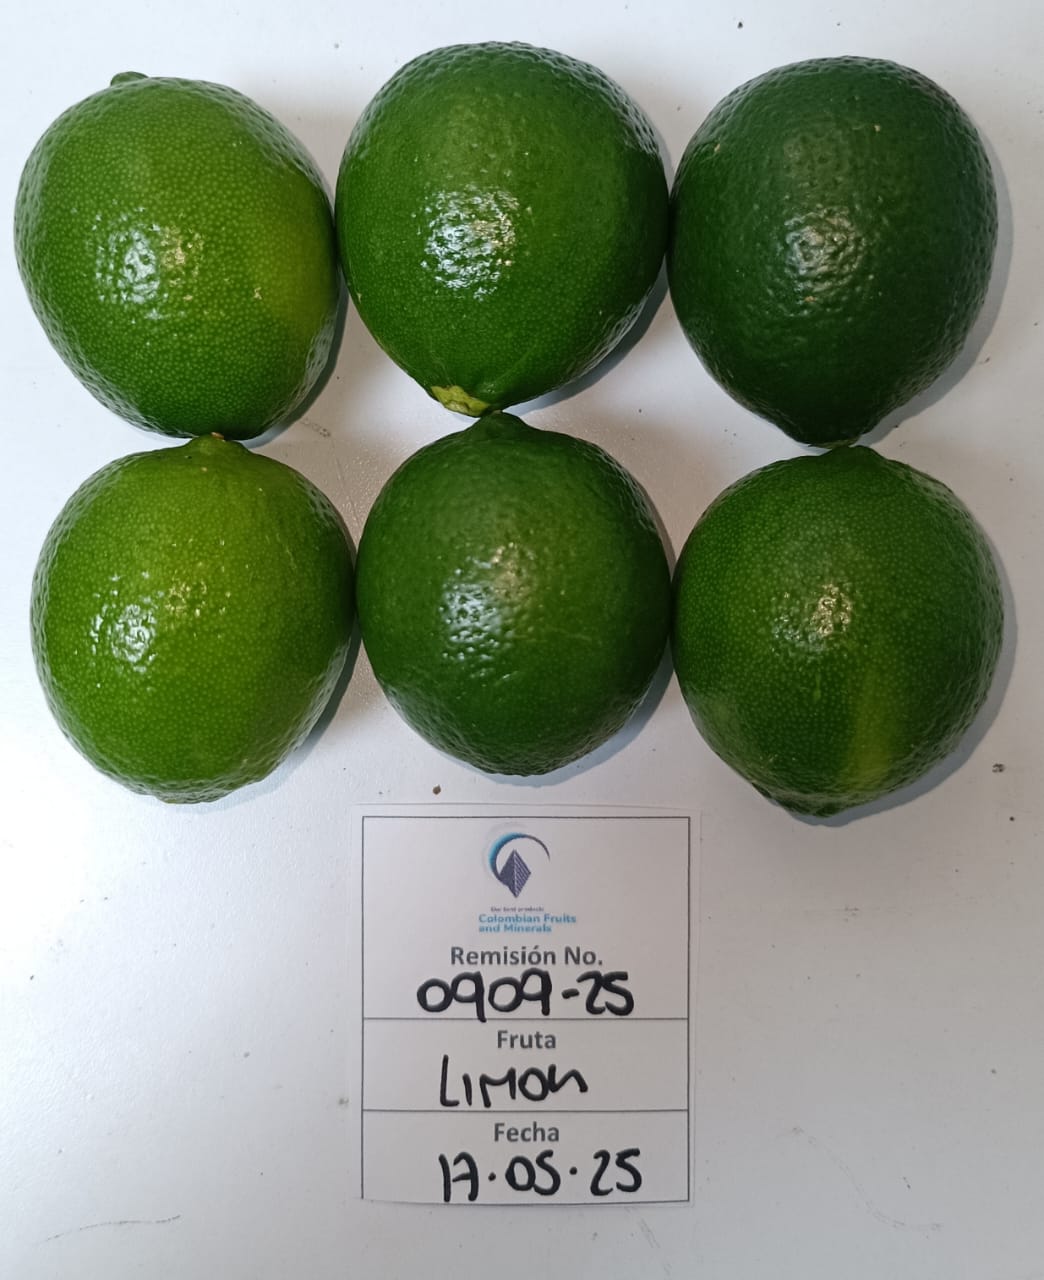 Our best products
Colombian Fruits
and Minerals
Remisión No.
0909-25
Fruta
LIMON
Fecha
17.05.25